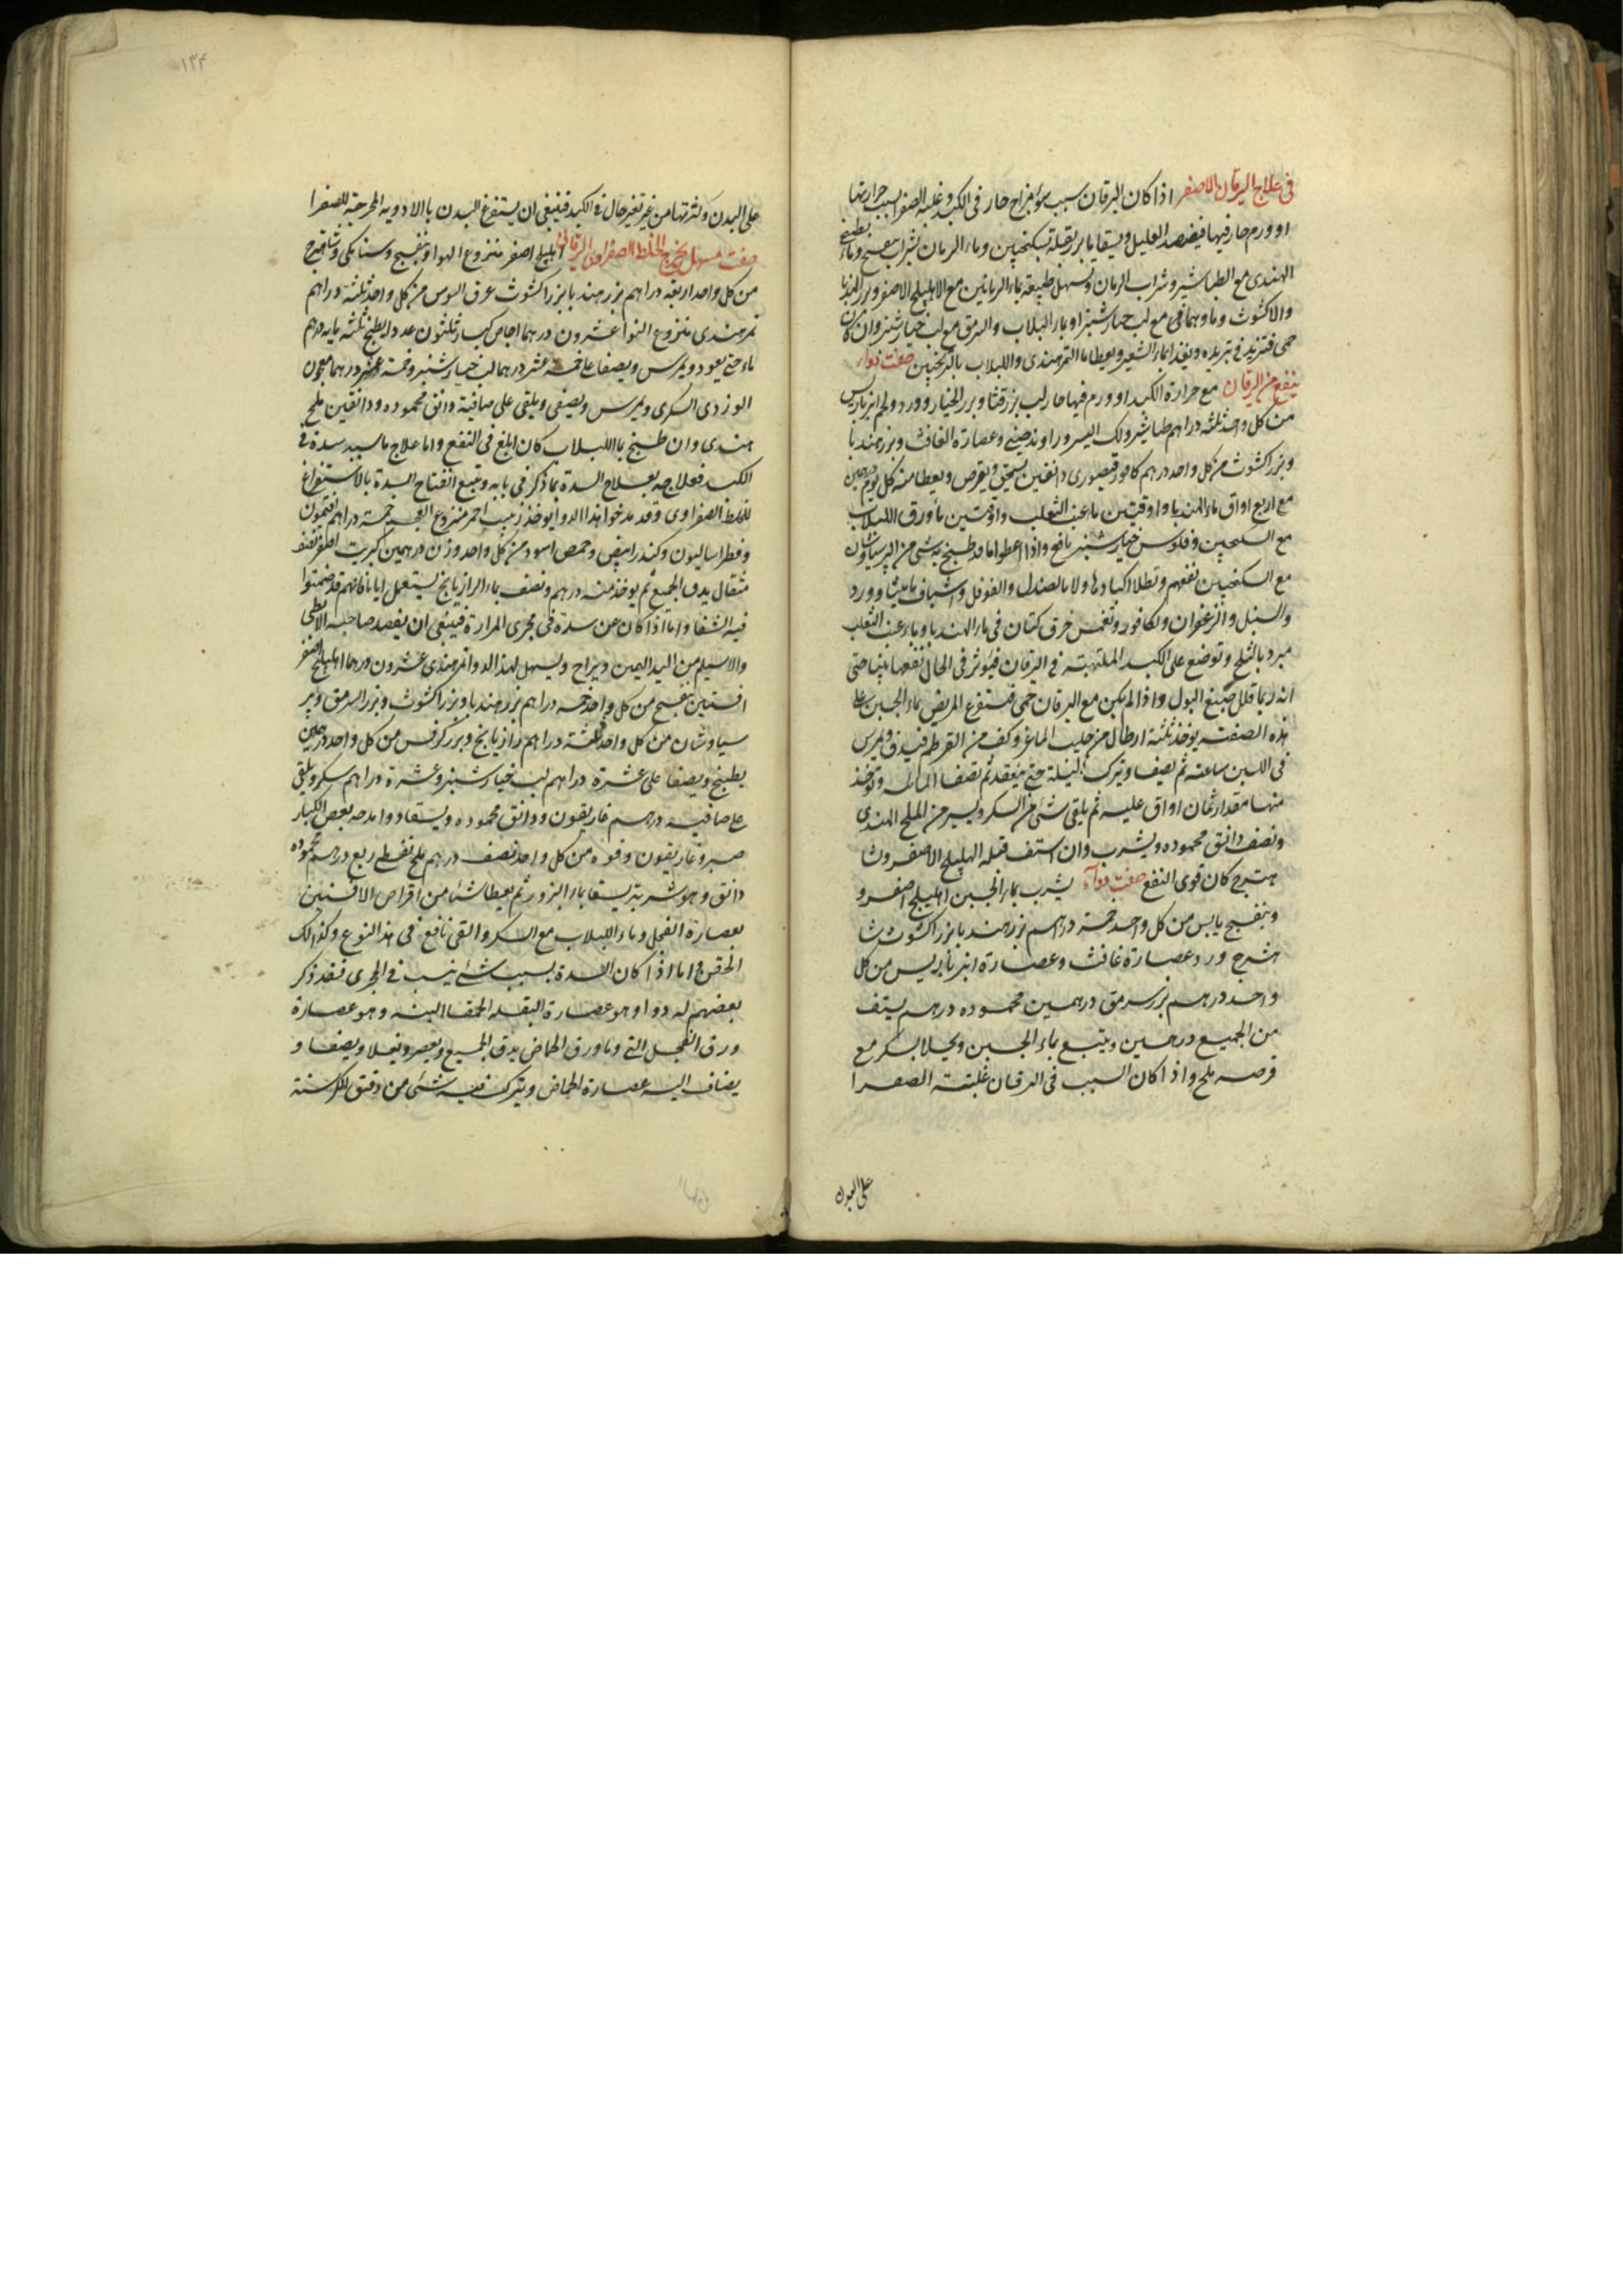 في علاج اليرقان الاصفر اذا كان اليرقان بسبب سوء مزاج حار في الكبد وغلبة الصفرا بسبب حرارتها
او ورم حار فيها فيفصد العليل ويسقا بزر بقلة بسكنجبين وماء الرمان بشراب بنفسج وماء بطيخ
الهندي مع الطباشير وشراب الرمان ويسهل طبيعته بماء الرمانين مع الاهليلج الاصفر وبزر الهندبا
والاكشوث مع لب خيارشنبر او بماء اللبلاب والسرمق مع لب خيارشنبر وان كان
حمى فتزيد في تبريده ويغذا بماء الشعير ويعطا ماء التمر هندي واللبلاب بالترنجبين صفت دواء
ينفع من اليرقان مع حرارة الكبد او ورم فيها حار لب بزر قثا وبزر الخيار وورد ولحم انبرباريس
من كل واحد ثلثه دراهم طباشير ولك اليسر وراوند صيني وعصارة الغافث وبزر هندبا
وبزر اكشوث من كل واحد درهم كافور قيصوري دانقين يسحق ويقرص ويعطا منه كل يوم درهمين
مع اربع اواق ماء الهندبا واوقيتين ماء عنب الثعلب واوقيتين ماء ورق اللبلاب
مع السكنجبين وفلوس خيارشنبر نافع واذا اعطوا ما قد طبخ فيه شي من البرسياوشان
مع السكنجبين نفعهم وتطلا اكبادها ولا بالصندل والفوفل واشياف ماميثا وورد
والسنبل والزعفران والكافور وتغمس خرق كتان في ماء الهندبا وماء عنب الثعلب
مبرد بالثلج وتوضع على الكبد الملتهبة في اليرقان فيؤثر في الحال نفعها بينا حتى
انه ربما قلل صبغ البول واذا لم يكن مع اليرقان حمى فيستفرغ المريض بماء الجبن على
هذه الصفت يوخذ ثلثه ارطال من حليب الماعز وكف من القرطم فيدق ويمرس
في اللبن ساعته ثم يصفا ويترك ليلة حتى ينعقد ثم تصفا المائية وتوخذ
منها مقدار ثمان اواق عليه ثم يلقى شئ من السكر ويسير من الملح الهندي
ونصف دانق محموده ويشرب وان استف قبله الهليلج الاصفر وشا
هترج كان قوى النفع صفت دواء يشرب بماء الجبن اهليلج اصفر و
وبنفسج يابس من كل واحد خمسة دراهم بزر هندبا بزر اكشوث شا
هترج ورد عصارة غافث وعصارة انبرباريس من كل
واحد درهم بزر سرمق درهمين محموده درهم يستف
من الجميع درهمين ويتبع بماء الجبن ويحلا بسكر مع
قرصه ملح واذا كان السبب في اليرقان غلبته الصفرا
على البدن
۱۳۴
على البدن وكثرتها من غير تغير حال في الكبد فينبغي ان يستفرغ البدن بالادويه المخرجة للصفرا
صفت مسهل يخرج الخلط الصفراوي اليرقاني اهليلج اصفر منزوع النوا وبنفسج وسنا مكي وشاهترج
من كل واحد اربعة دراهم بزر هندبا بزر اكشوث عرق السوس من كل واحد ثلثة دراهم
تمر هندي منزوع النوا عشرون درهما اجاص كبار ثلثون عددا يطبخ ثلثه مايه درهم
ماء حتى يعود ويمرس ويصفا على خمسة عشر درهما لب خيارشنبر وخمسة عشر درهما معجون
الورد السكري ويمرس ويصفي ويلقى على صافيه دانق محموده ودانقين ملح
هندي وان طبخ باللبلاب كان ابلغ في النفع واما علاج ما سببه سدة في
الكبد فعلاجه بعلاج السدة بما ذكر في بابه ويتبع انفتاح السدة بالاستفراغ
للخلط الصفراوى وقد مدحوا هذا الدوا يوخذ زبيب احمر منزوع العجم خمسة دراهم افتيمون
وفطراساليون وكندر ابيض وحمص اسود من كل واحد وزن درهمين كبريت اصفر نصف
مثقال يدق الجميع ثم يوخذ منه درهم ونصف بماء الرازيانج يستعمل اياما فانهم قد ضمنوا
فيه الشفا واما اذا كان من سدة في مجرى المرارة فينبغي ان يفصد صاحبه الابطي
والاسيلم من اليد اليمين ويراح ويسهل بهذا الدوا تمر هندي عشرون درهما اهليلج اصفر
افسنتين بنفسج من كل واحد خمسه دراهم بزر هندبا وبزر اكشوث وبزر السرمق وبر
سياوشان من كل واحد ثلثة دراهم رازيانج وبزر كرفس من كل واحد درهمين
يطبخ ويصفا على عشرة دراهم لب خيارشنبر وعشرة دراهم سكر ويلقى
على صافيه درهم غاريقون ودانق محموده ويسقا دوا مدحه بعض الكبار
صبر وغاريقون وفوه من كل واحد نصف درهم ملح نفطي ربع درهم محموده
دانق وهو شربة يسقا بماء البزور ثم يعطا شيا من اقراص الافسنتين
بعصارة الفجل وماء اللبلاب مع السكر والقى نافع في هذا النوع وكذالك
الحقن واما اذا كان السدة بسبب شئ ينبت في المجرى فقد ذكر
بعضهم له دوا وهو عصارة البقلة الحمقا البته وهو عصارة
ورق الفجل وماء ورق الحماض يدق الجميع ويعصر ويغلا ويصفا و
يضاف اليه عصارة الحماض ويترك فيه شئ من دقيق الكرسنه